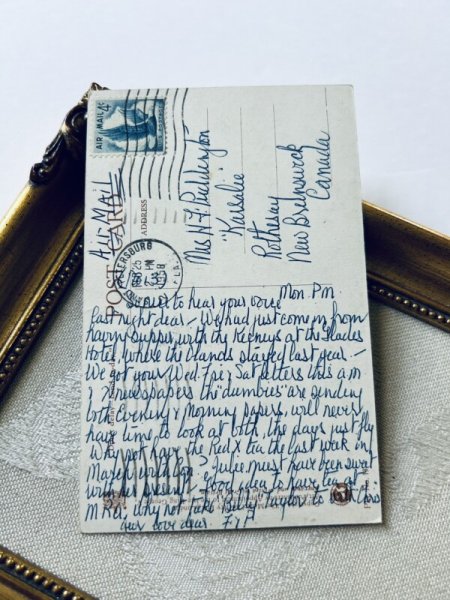 AIR MAIL 4¢
Air Mail
POST CARD
ADDRESS
Mrs H. F. Puddington
"Karsalie"
Rothesay
New Brunswick
Canada
PETERSBURG
PM
FLA.
Mon. P.m.
to hear your voice
last night dear – We had just come in from
having supper with the Keeneys at the Glades
Hotel, where the Blands stayed last year –
We got your Wed, Fri, & Sat letters this a.m
& 2 newspapers the "dumbies" are sending
both Evening & Morning papers, will never
have time to look at both, the days just fly
Why not have the Red X tea the last week in
March with Con? Julie must have been sweet
with her Good idea to have tea at
M Rei, why not take Billy Taylor to
our love dear. F & A